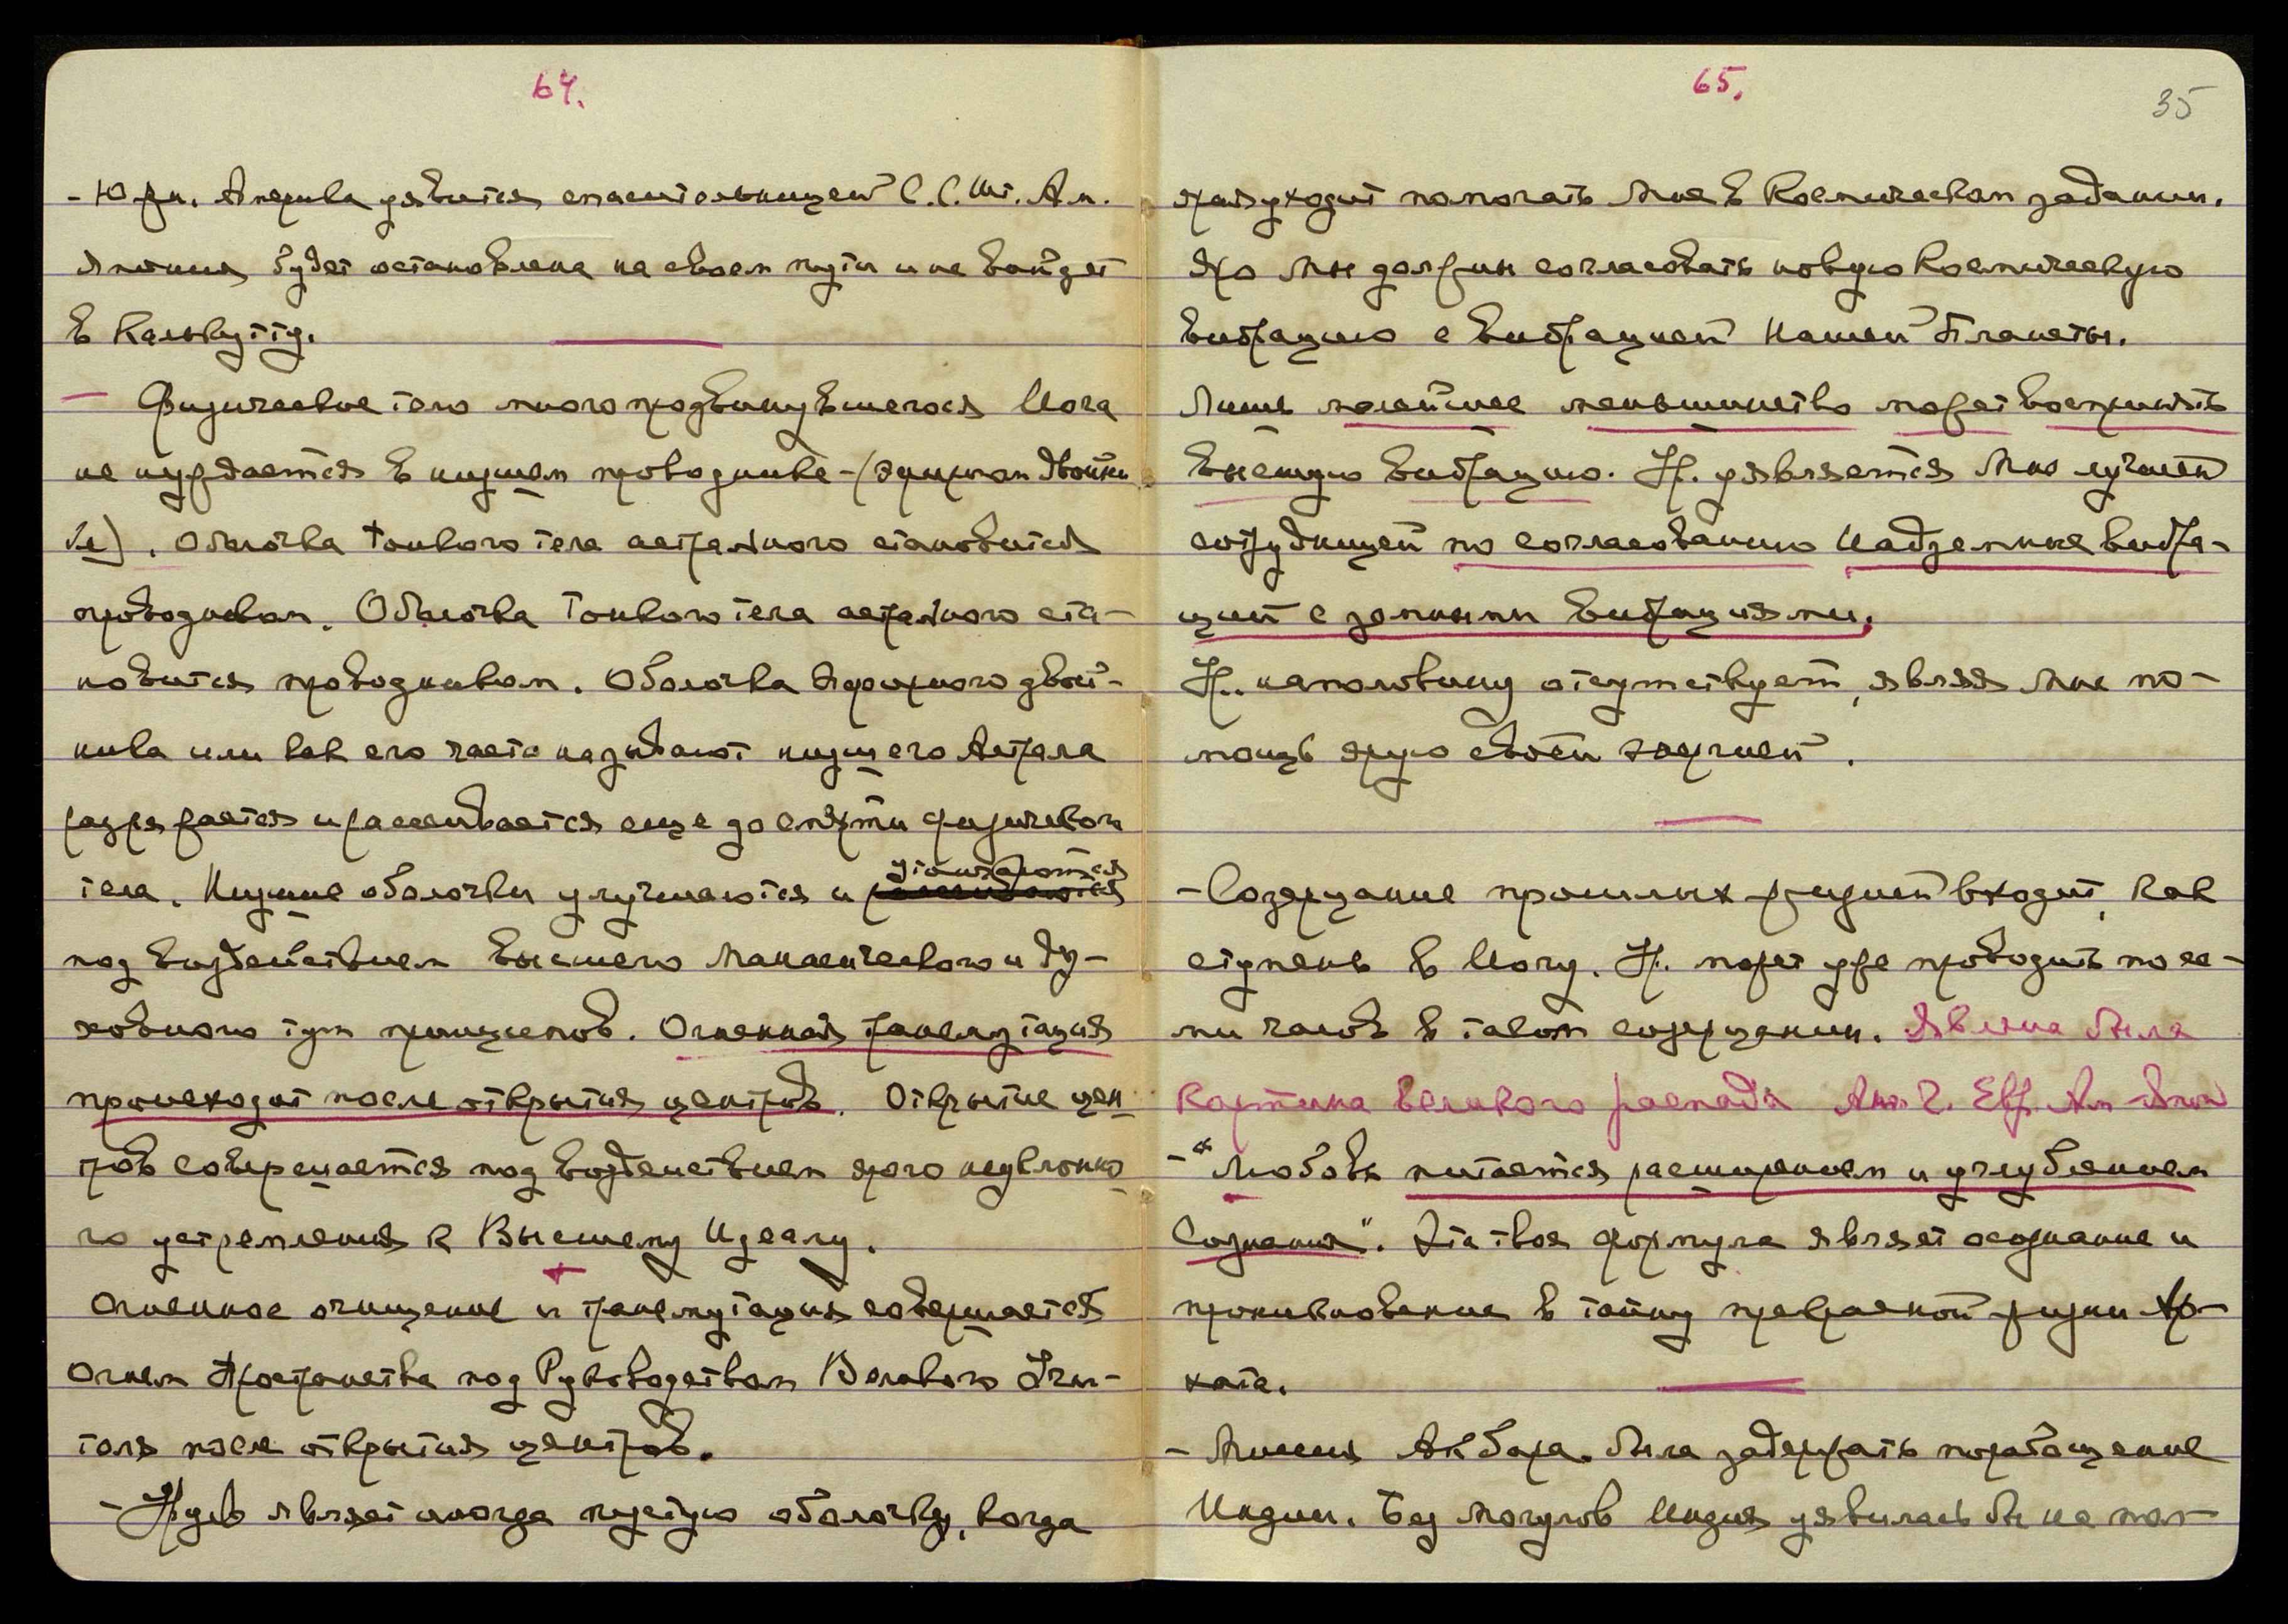 64.
- Юж. Америка уявится спасительницей С.С.Шт. Ам.
Япония будет остановлена на своем пути и не войдет
в Калькутту.
— Физическое тело много продвинувшегося Йога
не нуждается в низшем проводнике - (эфирном двойни
ке). Оболочка тонкого тела астрального становится
проводником. Оболочка тонкого тела астрального ста-
новится проводником. Оболочка эфирного двой-
ника или как его часто называют низшего Астрала
разряжается и рассеивается еще до смерти физическ.
тела. Низшие оболочки улучшаются и утончаются
под воздействием Высшего Манасического и Ду-
ховного принципов. Огненная трансмутация
происходит после открытия центров. Открытие цен
тров совершается под воздействием ярого неуклонно
го устремления к Высшему Идеалу.
Огненное очищение и трансмутация совершается
Огнем Пространства под Руководством Великого Учи-
теля после открытия центров.
- являет иногда пустую оболочку, когда
65.
35
уходит помогать Мне в Космическом задании.
Яро Мы должны согласовать новую Космическую
вибрацию с вибрацией нашей Планеты.
Лишь малейшее меньшинство может воспринять
Высшую вибрацию. Ур. уявляется Мне лучшей
сотрудницей по согласованию Надземные вибра-
ций с земными вибрациями.
Ур. наполовину отсутствует, являя Мне по-
мощь ярую своей энергией.
- Созерцание прошлых жизней входит, как
ступень в Йогу. Ур. может уже проводить по се-
ми часов в таком созерцании. Явлена была
картина великого распада Евр. Ам.
- "Любовь питается расширением и углублением
Сознания". Эта твоя формула являет осознание и
проникновение в тайну прекрасной жизни Ар-
хата.
- Миссия Акбара была задержать порабощение
Индии. Без Могулов Индия уявилась бы не мог-